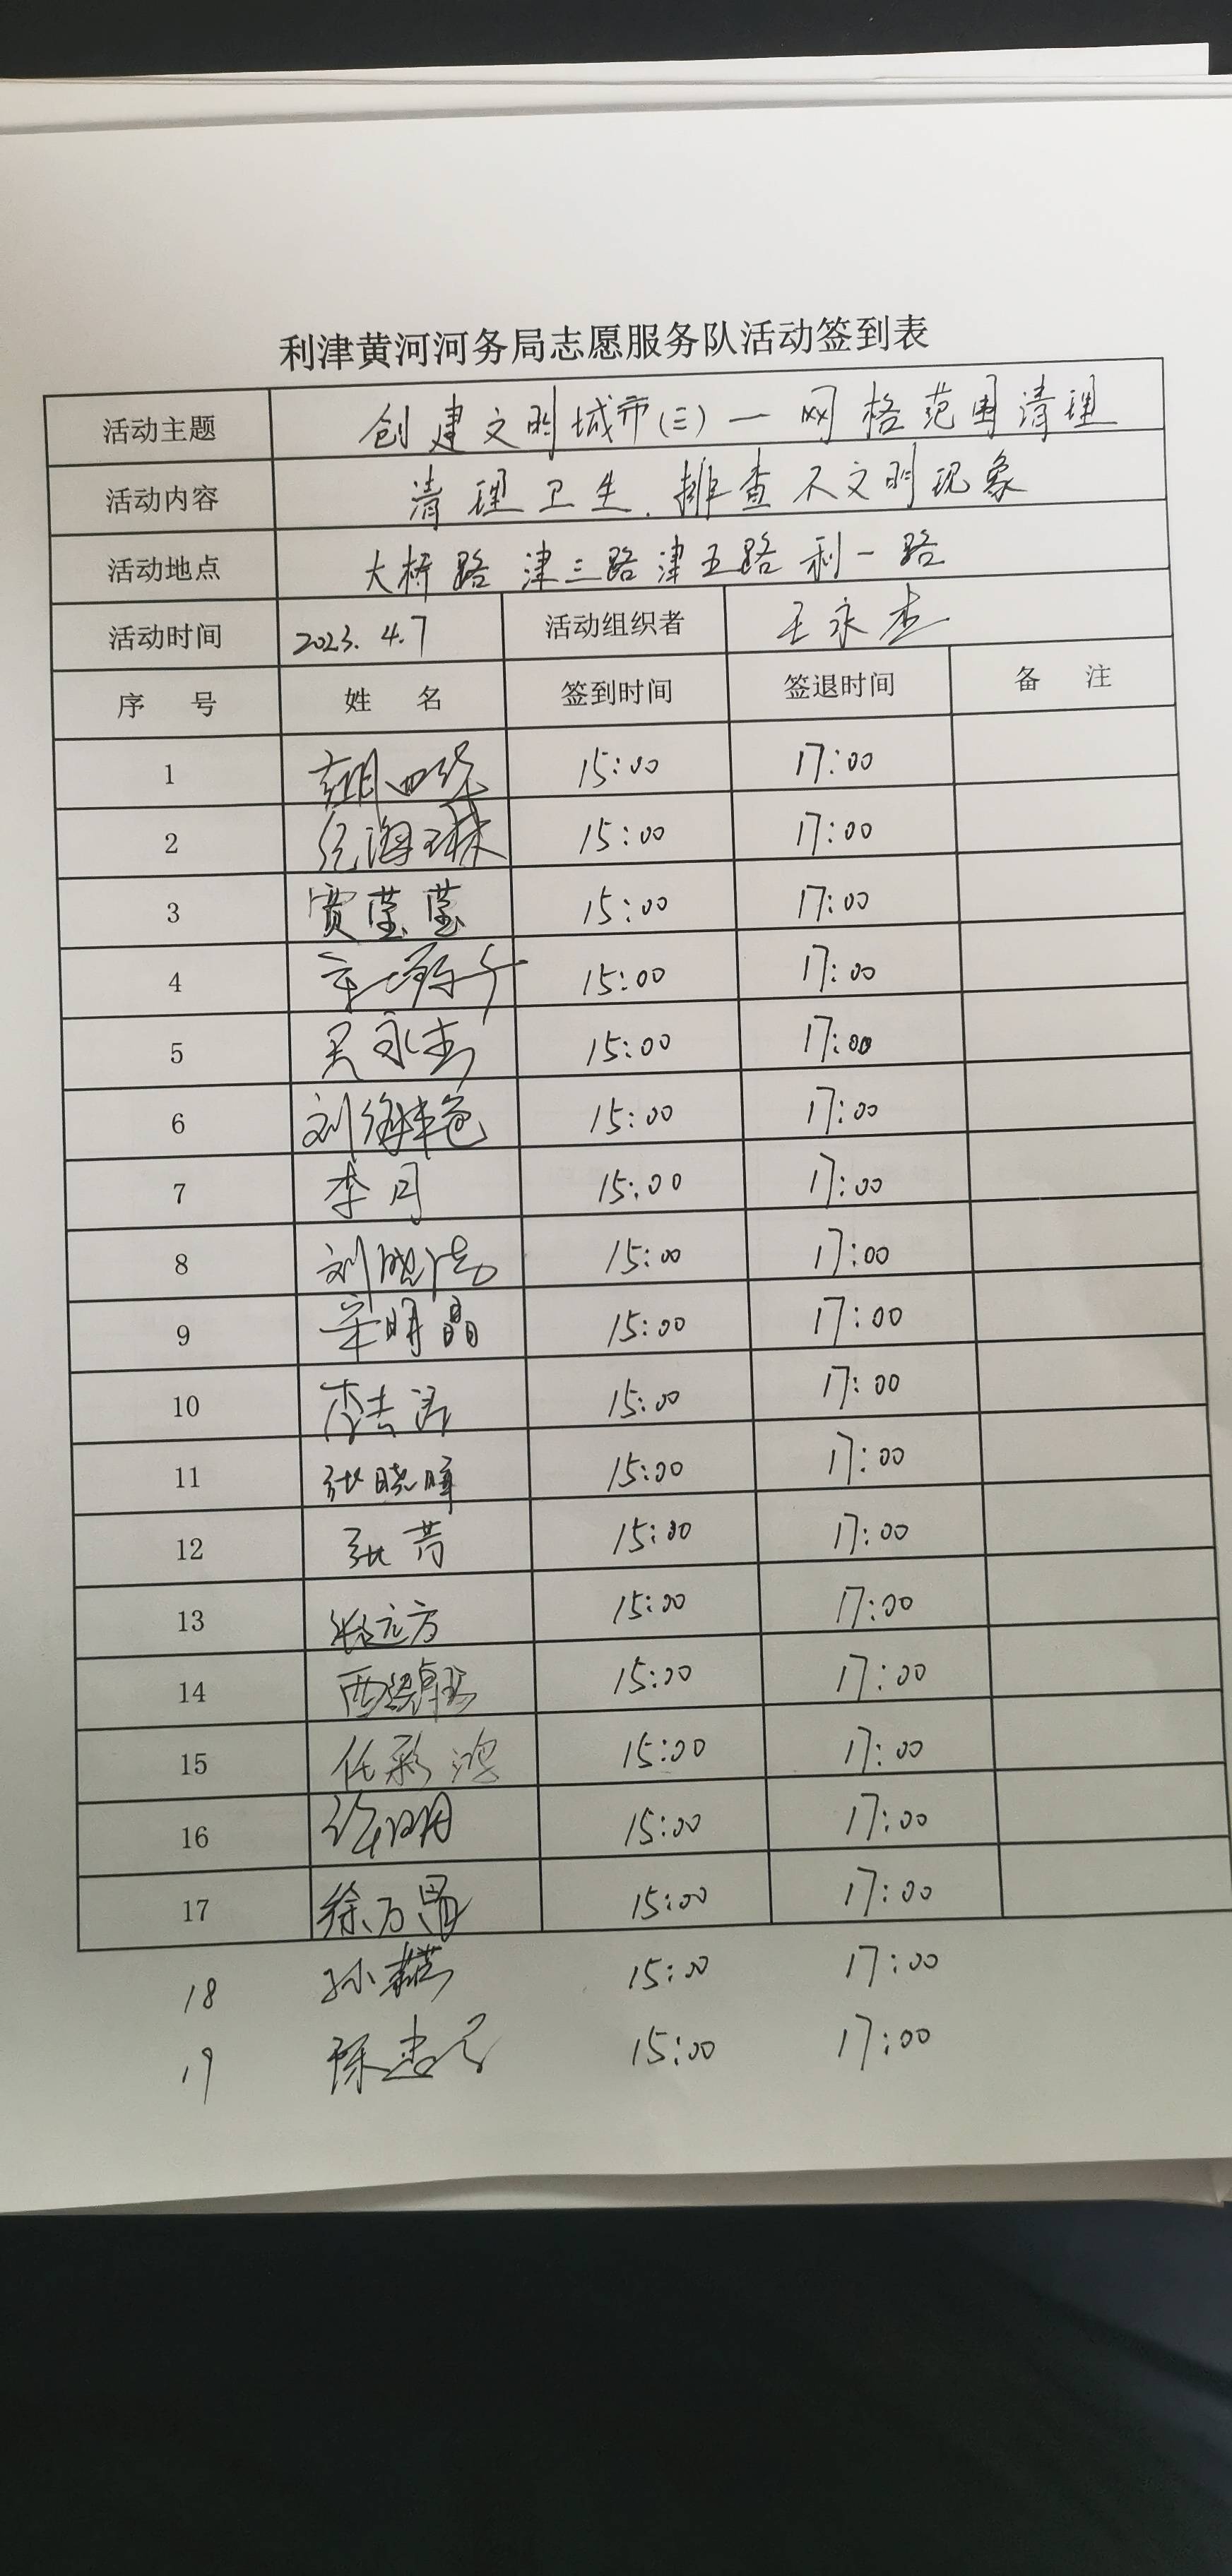 利津黄河河务局志愿服务队活动签到表
活动主题 创建文明城市(三)一网格范围清理
活动内容 清理卫生、排查不文明现象
活动地点 大桥路 津三路 津五路 利一路
活动时间 2023.4.7 活动组织者 王永杰
序 号 姓 名 签到时间 签退时间 备 注
1 15:00 17:00
2 纪海琳 15:00 17:00
3 贾莹莹 15:00 17:00
4 15:00 17:00
5 永杰 15:00 17:00
6 刘 15:00 17:00
7 李月 15:00 17:00
8 刘晓 15:00 17:00
9 明晶 15:00 17:00
10 李 15:00 17:00
11 张晓晖 15:00 17:00
12 张芳 15:00 17:00
13 张远方 15:00 17:00
14 15:00 17:00
15 任彩鸿 15:00 17:00
16 15:00 17:00
17 徐万 15:00 17:00
18 孙 15:00 17:00
19 陈 15:00 17:00